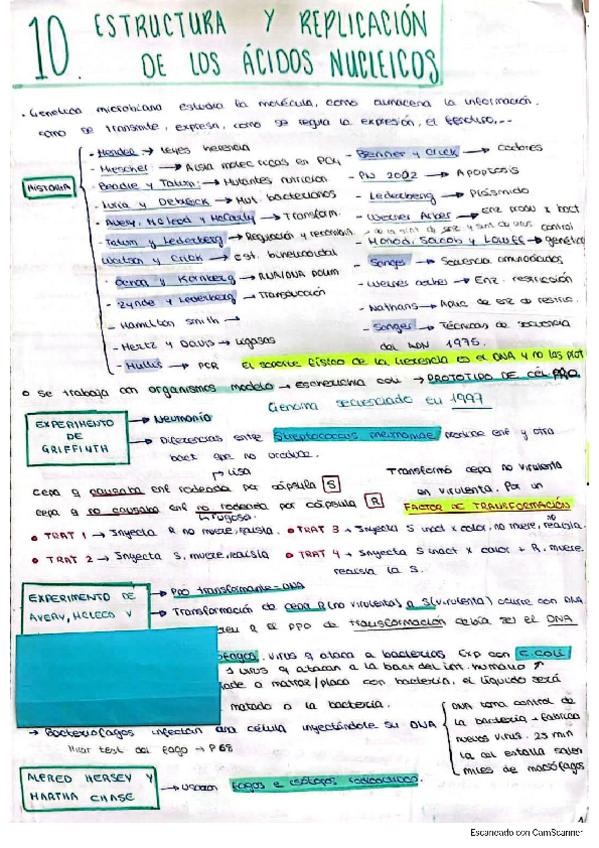 10. ESTRUCTURA Y REPLICACIÓN
DE LOS ÁCIDOS NUCLEICOS
· Genética microbiana estudia la molécula, como almacena la información,
como se transmite, expresa, como se regula la expresión, el
HISTORIA
- Mendel → leyes herencia
- Miescher → Aisla moléculas en
- Beadle y Tatum → Mutantes nutrición
- Luria y Delbrück → Mut. bacterianos
- Avery, Mcleod y McCarty → Transform.
- Tatum y Lederberg → Regulación y
- Watson y Crick → est. bihelicoidal
- Ochoa y Kornberg → RNA/DNA polim
- Zynde y Lederberg → Transducción
- Hamilton Smith →
- Hertz y David → ligasas
- Mullis → PCR
- Brenner y Crick → Codones
- PN 2002 → Apoptosis
- Lederberg → Plásmido
- Werner Arber → Enz prodx x bact
- Monod, Jacob y Lwoff → control genético
- Sanger → Secuencia aminoácidos
- Werner Arber → Enz. restricción
- Nathans → Aplic. de enz de restric.
- Sanger → Técnicas de secuencia
del ADN 1975.
El soporte físico de la herencia es el DNA y no las prot
o Se trabaja con organismos modelo → escherichia coli → PROTOTIPO DE CÉL PRO
Genoma secuenciado en 1997
EXPERIMENTO
DE
GRIFFINTH
→ Neumonía
→ Diferencias entre Streptococcus pneumoniae produce enf y otra
bact que no produce.
↱ lisa
cepa q causaba enf rodeada por cápsula S
cepa q no causaba enf no rodeada por cápsula R
↳ rugosa.
Transformó cepa no virulenta
en virulenta. Por un
FACTOR DE TRANSFORMACIÓN
• TRAT 1 → Inyecta R no muere, raisla.
• TRAT 2 → Inyecta S, muere, raisla
• TRAT 3 → Inyecta S inact x calor, no muere, no raisla.
• TRAT 4 → Inyecta S inact x calor + R. muere.
raisla la S.
EXPERIMENTO DE
AVERY, MCLEOD Y
→ Ppo transformante = DNA
→ Transformación de cepa R (no virulenta) a S (virulenta) ocurre con DNA
R el PPO de transformación debía ser el DNA
fagos. virus q ataca a bacterias Exp con E. coli
virus q atacan a la bact del int. humano
a matraz/placa con bacteria, el líquido será
matado a la bacteria.
→ Bacteriófagos infectan una célula inyectándole su DNA
DNA toma control de
la bacteria + fabrica
nuevos virus. 25 min
la cel estalla salen
miles de macrófagos
Mirar test del fago → P68
ALFRED HERSEY Y
MARTHA CHASE
→ Usaron fagos e isótopos radioactivos.
Escaneado con CamScanner